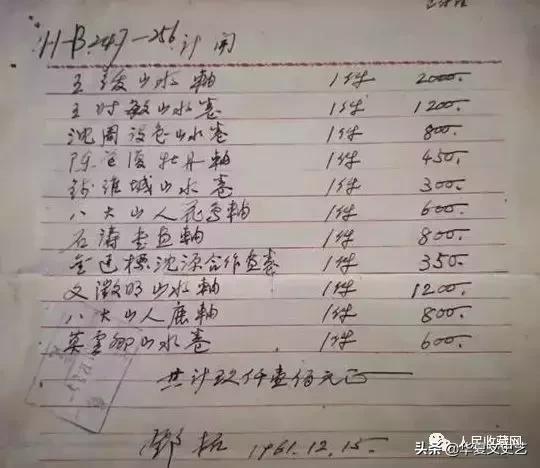 H-B247-256 计开
王绂山水軸 1件 2000.
王时敏山水卷 1件 1200.
沈周设色山水卷 1件 800.
陈道復牡丹軸 1件 450.
钱维城山水卷 1件 300.
八大山人花鸟軸 1件 600.
石涛书画軸 1件 800.
金廷標沈源合作画卷 1件 350.
文徵明山水軸 1件 1200.
八大山人鹿軸 1件 800.
莫雲卿山水卷 1件 600.
共计玖仟壹佰元正
邓拓 1961.12.15.
人民收藏网
头条@华夏文史艺